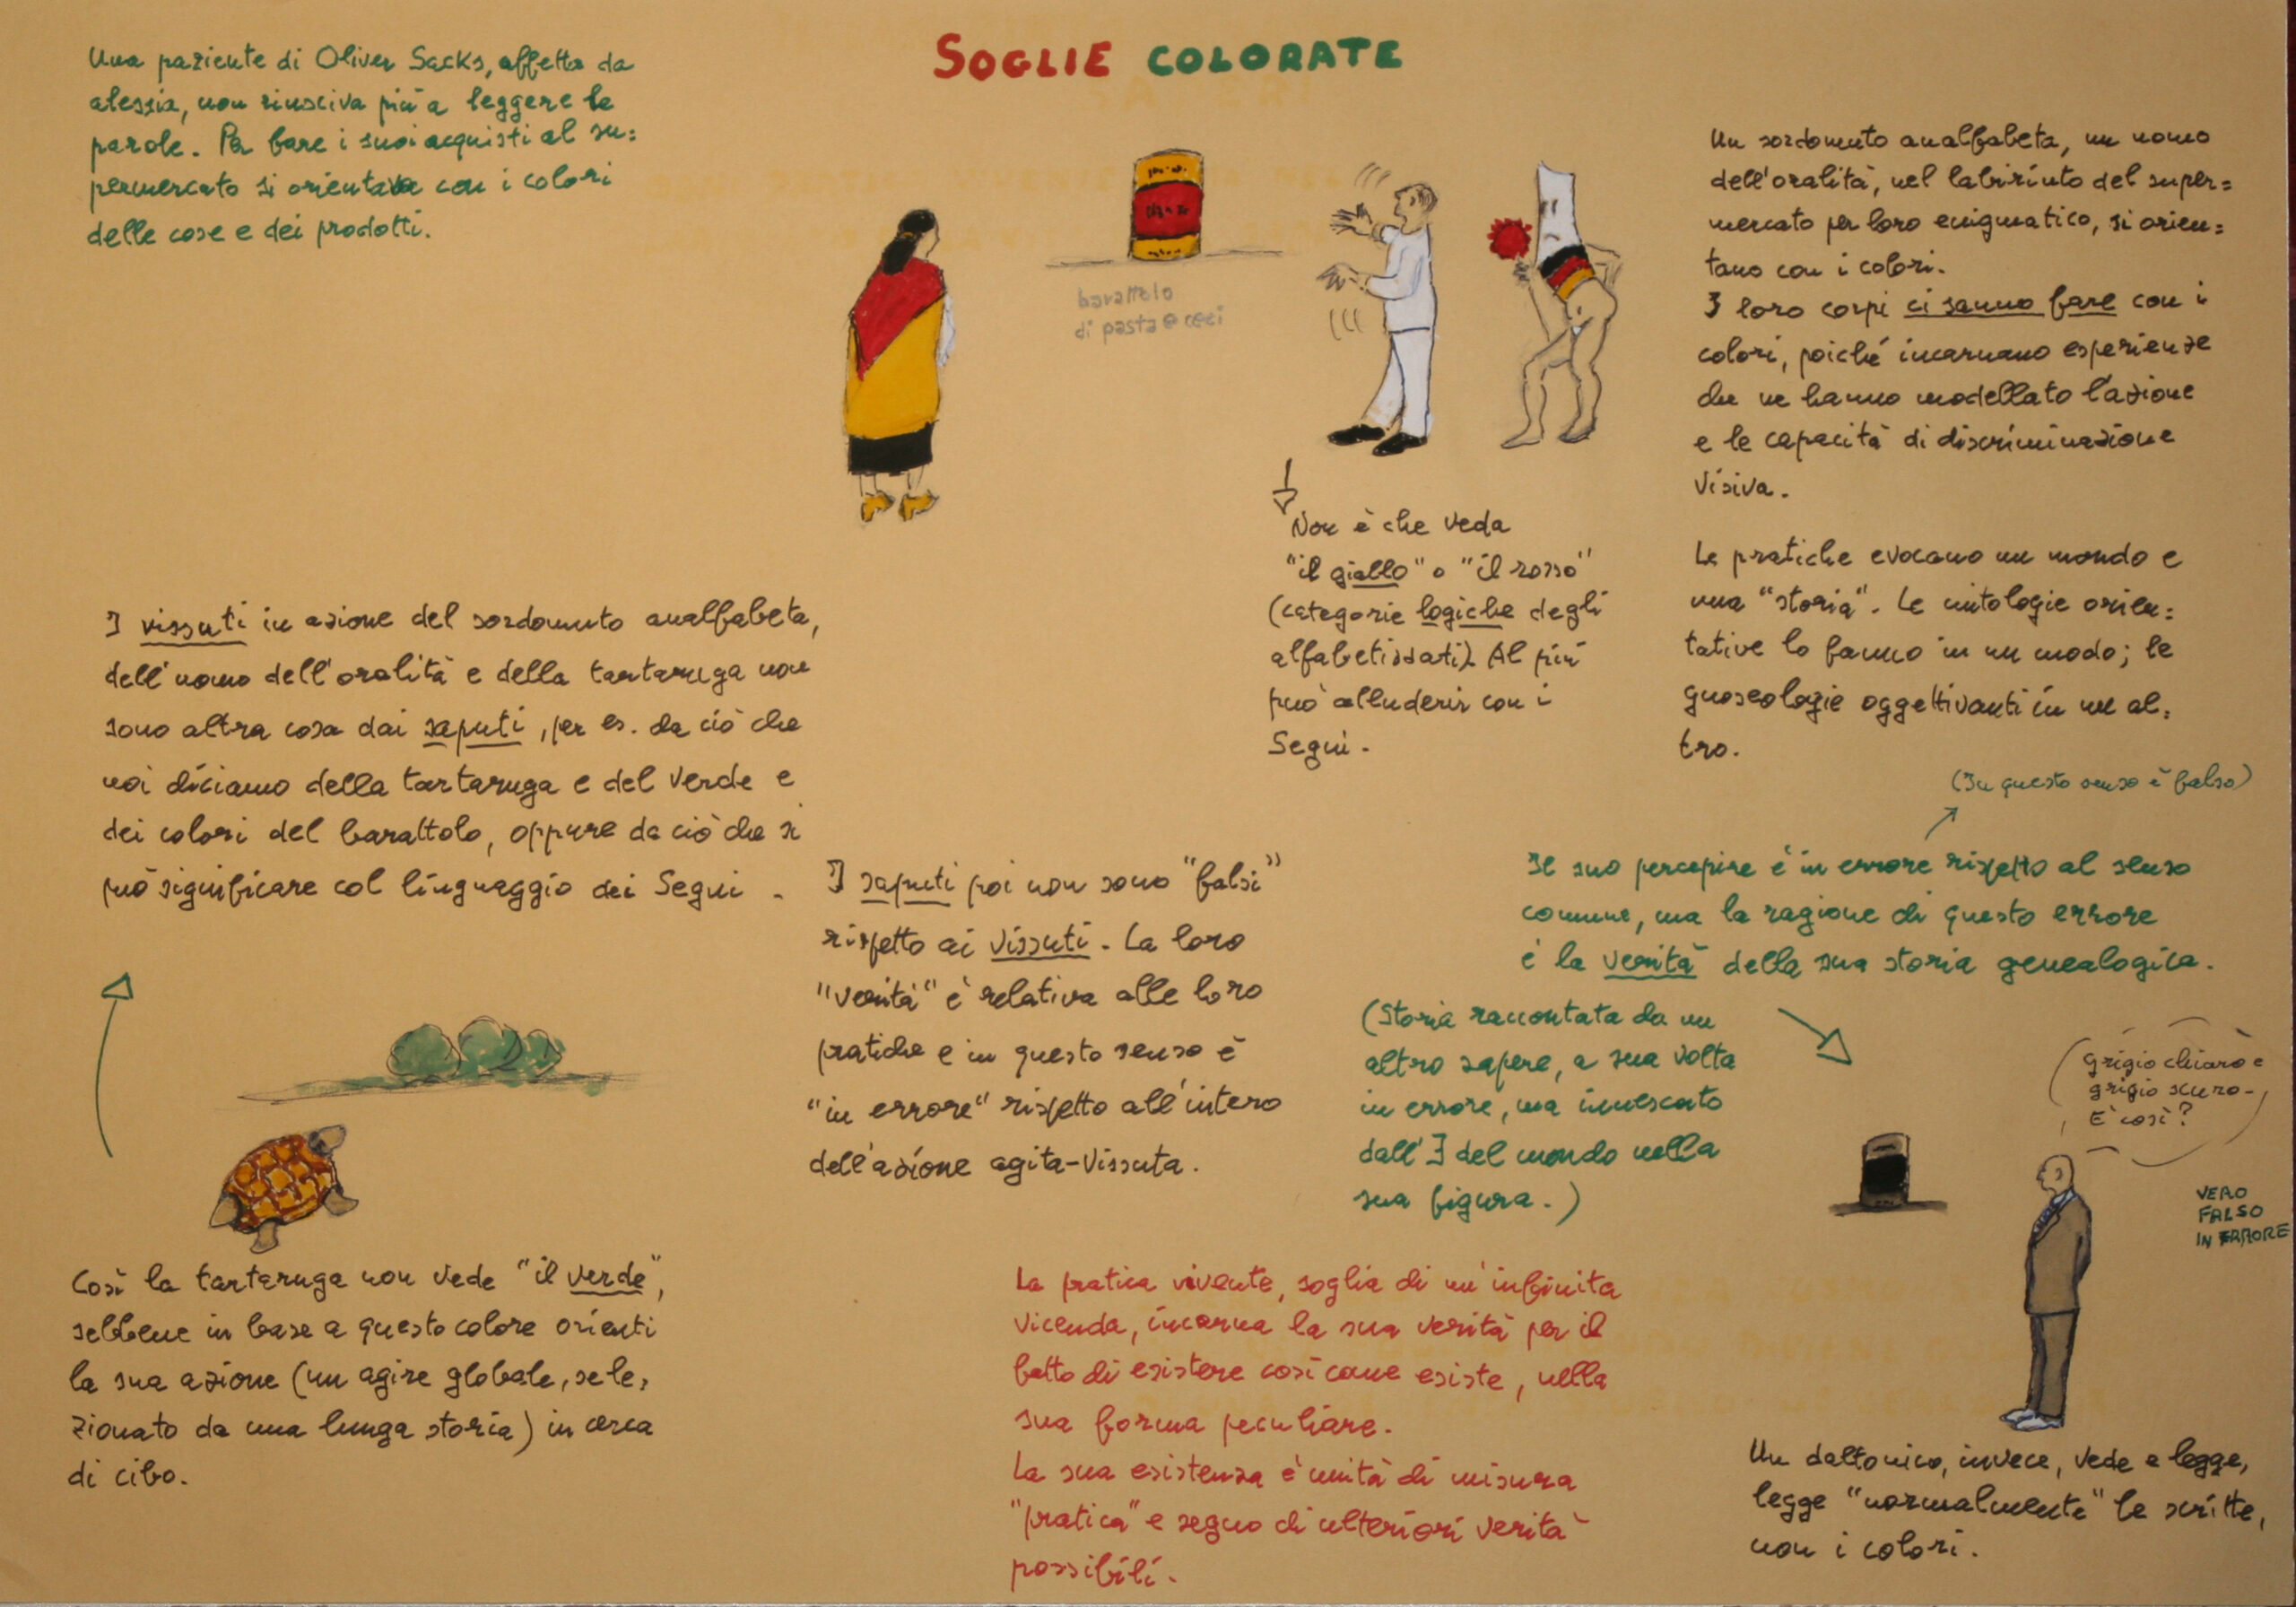 SOGLIE COLORATE
Una paziente di Oliver Sacks, affetta da
alessia, non riusciva più a leggere le
parole. Per fare i suoi acquisti al su=
permercato si orientava con i colori
delle cose e dei prodotti.
barattolo
di pasta e ceci
Un sordomuto analfabeta, un uomo
dell'oralità, nel labirinto del super=
mercato per loro enigmatico, si orien=
tano con i colori.
I loro corpi ci sanno fare con i
colori, poiché incarnano esperienze
che ne hanno modellato l'azione
e le capacità di discriminazione
visiva.
Le pratiche evocano un mondo e
una "storia". Le mitologie orien=
tative lo fanno in un modo; le
gnoseologie oggettivanti in un al=
tro.
Non è che veda
"il giallo" o "il rosso"
(categorie logiche degli
alfabetizzati). Al più
può alludervi con i
Segni.
I vissuti in azione del sordomuto analfabeta,
dell'uomo dell'oralità e della tartaruga non
sono altra cosa dai saputi, per es. da ciò che
noi diciamo della tartaruga e del verde e
dei colori del barattolo, oppure da ciò che si
può significare col linguaggio dei Segni.
I saputi poi non sono "falsi"
rispetto ai vissuti. La loro
"verità" è relativa alle loro
pratiche e in questo senso è
"in errore" rispetto all'intero
dell'azione agita-vissuta.
(In questo senso è falso)
Il suo percepire è in errore rispetto al senso
comune, ma la ragione di questo errore
è la verità della sua storia genealogica.
(Storia raccontata da un
altro sapere, a sua volta
in errore, ma innescato
dall'∃ del mondo nella
sua figura.)
Grigio chiaro e
grigio scuro-
È così?
VERO
FALSO
IN ERRORE
Così la tartaruga non vede "il verde",
sebbene in base a questo colore orienti
la sua azione (un agire globale, sele=
zionato da una lunga storia) in cerca
di cibo.
La pratica vivente, soglia di un'infinita
vicenda, incarna la sua verità per il
fatto di esistere così come esiste, nella
sua forma peculiare.
La sua esistenza è unità di misura
"pratica" e segno di ulteriori verità
possibili.
Un daltonico, invece, vede e legge,
legge "normalmente" le scritte,
non i colori.